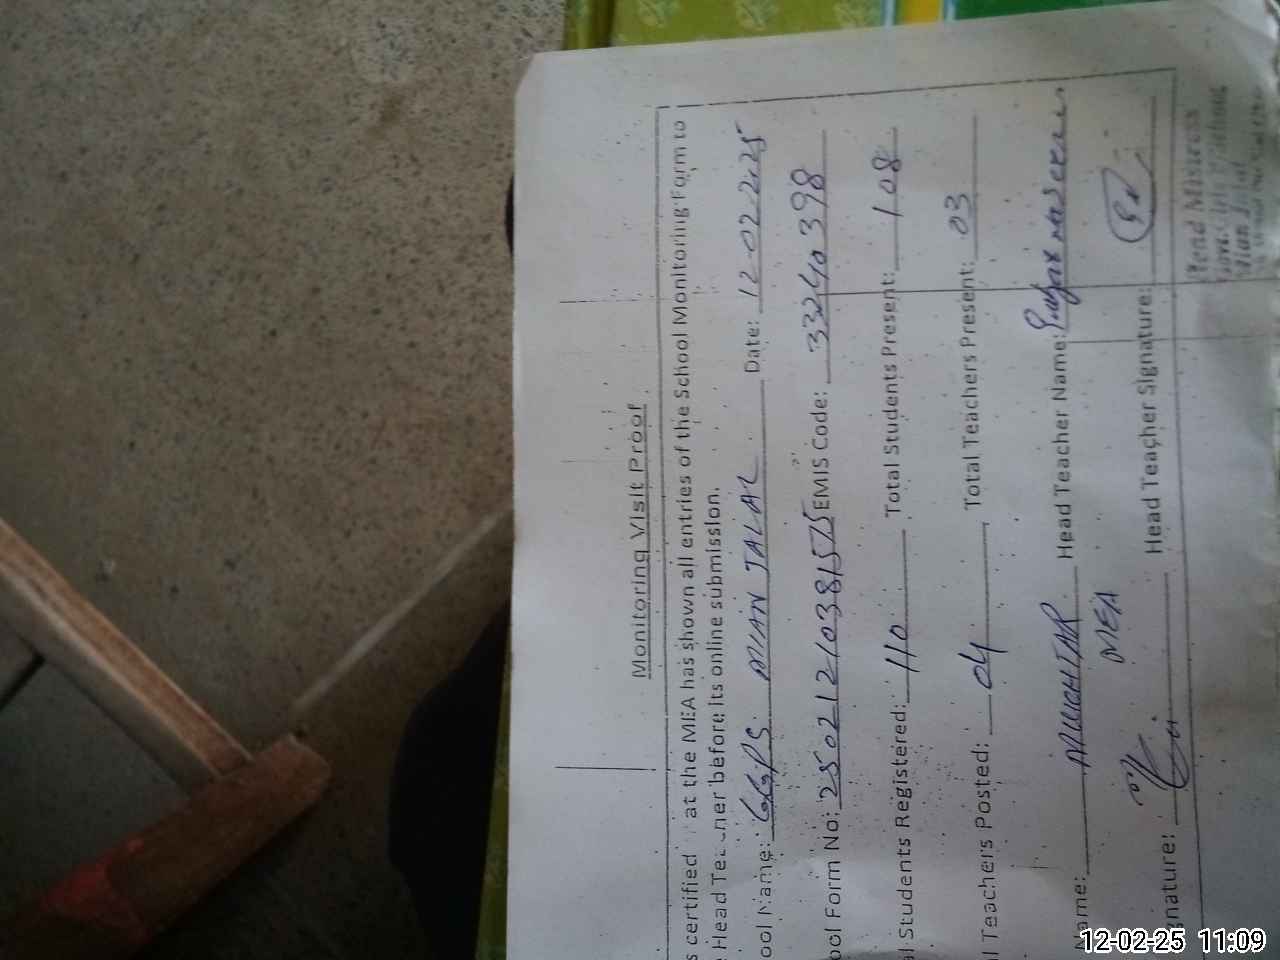 Monitoring Visit Proof
s certified at the MEA has shown all entries of the School Monitoring Form to
Head Teacher before its online submission.
ool Name: GGPS MIAN JALAL Date: 12-02-2025
ool Form No: 25021210381575 EMIS Code: 33240398
l Students Registered: 110 Total Students Present: 108
l Teachers Posted: 04 Total Teachers Present: 03
Name: MUKHTAR Head Teacher Name:
MEA
gnature: Head Teacher Signature:
12-02-25 11:09